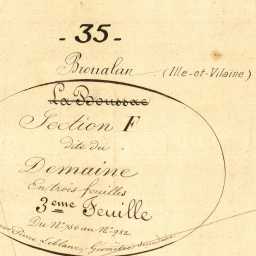 - 35 -
Broualan (Ille-et-Vilaine.)
La Boussac
Section F
dite du
Domaine
En trois feuilles
3eme Feuille
Du N° 750 au N° 982
Leblanc, Géomètre